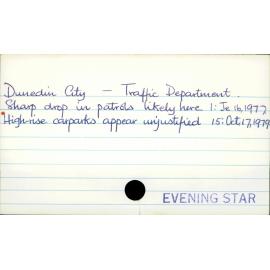 Dunedin City — Traffic Department.
Sharp drop in patrols likely here 1: Je 16, 1977
High-rise carparks appear unjustified 15: Oct, 17, 1979
EVENING STAR